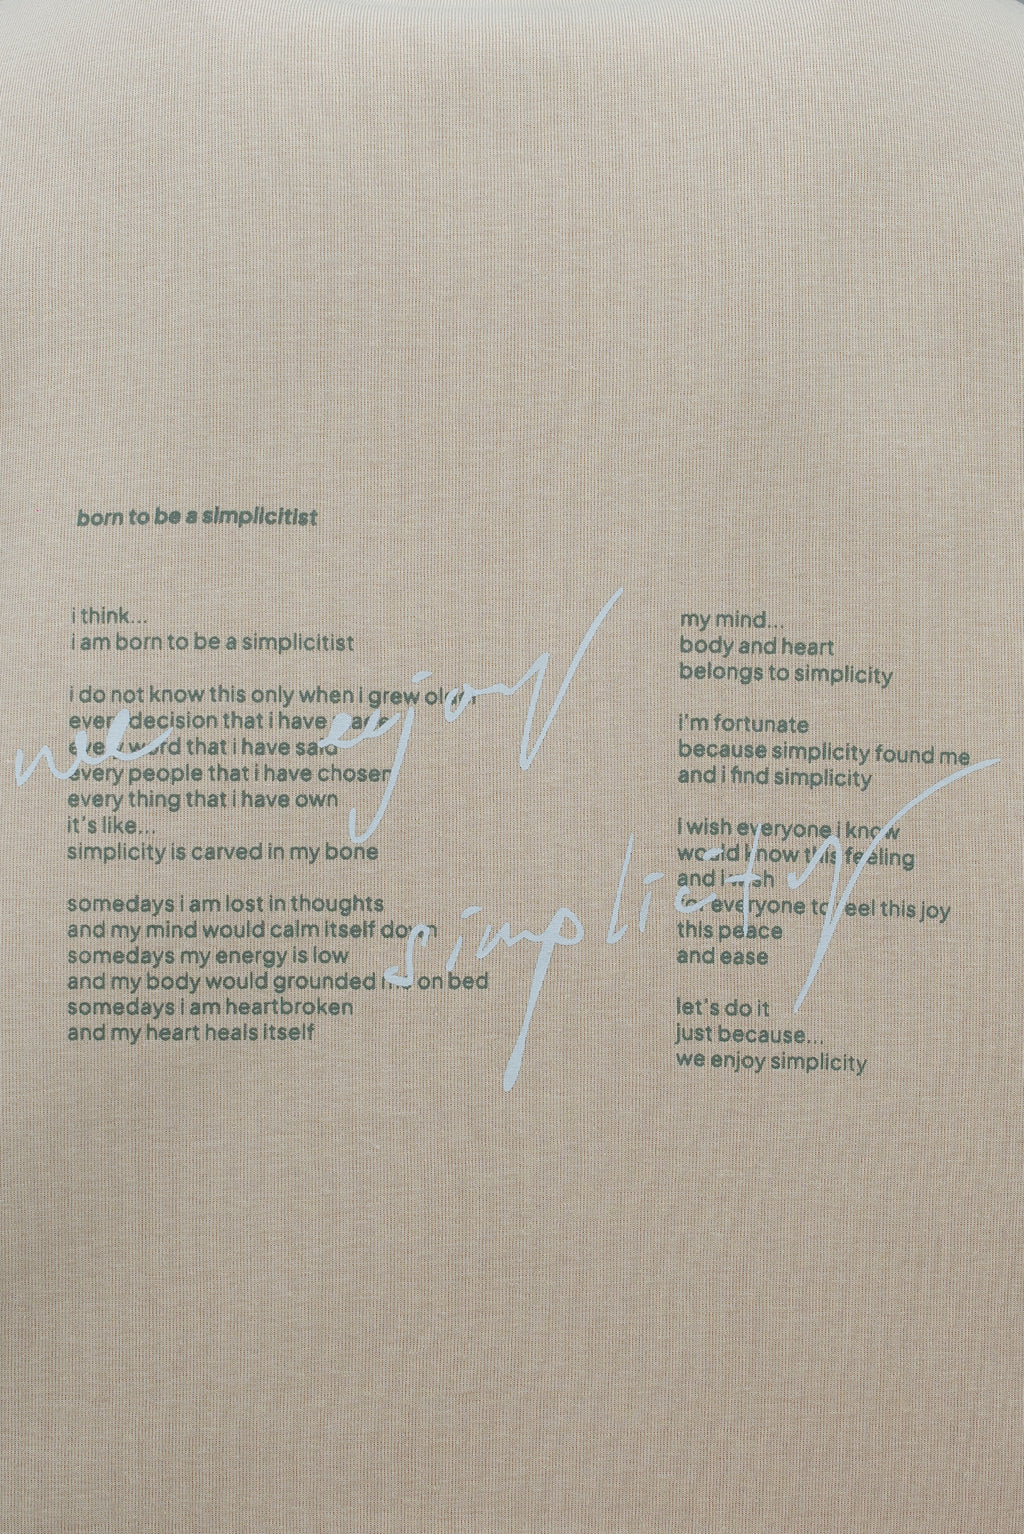 born to be a simplicitist
i think...
i am born to be a simplicitist
i do not know this only when i grew older
every decision that i have made
every word that i have said
every people that i have chosen
every thing that i have own
it's like...
simplicity is carved in my bone
somedays i am lost in thoughts
and my mind would calm itself down
somedays my energy is low
and my body would grounded me on bed
somedays i am heartbroken
and my heart heals itself
my mind...
body and heart
belongs to simplicity
i'm fortunate
because simplicity found me
and i find simplicity
i wish everyone i know
would know this feeling
and i wish
for everyone to feel this joy
this peace
and ease
let's do it
just because...
we enjoy simplicity
we enjoy
simplicity